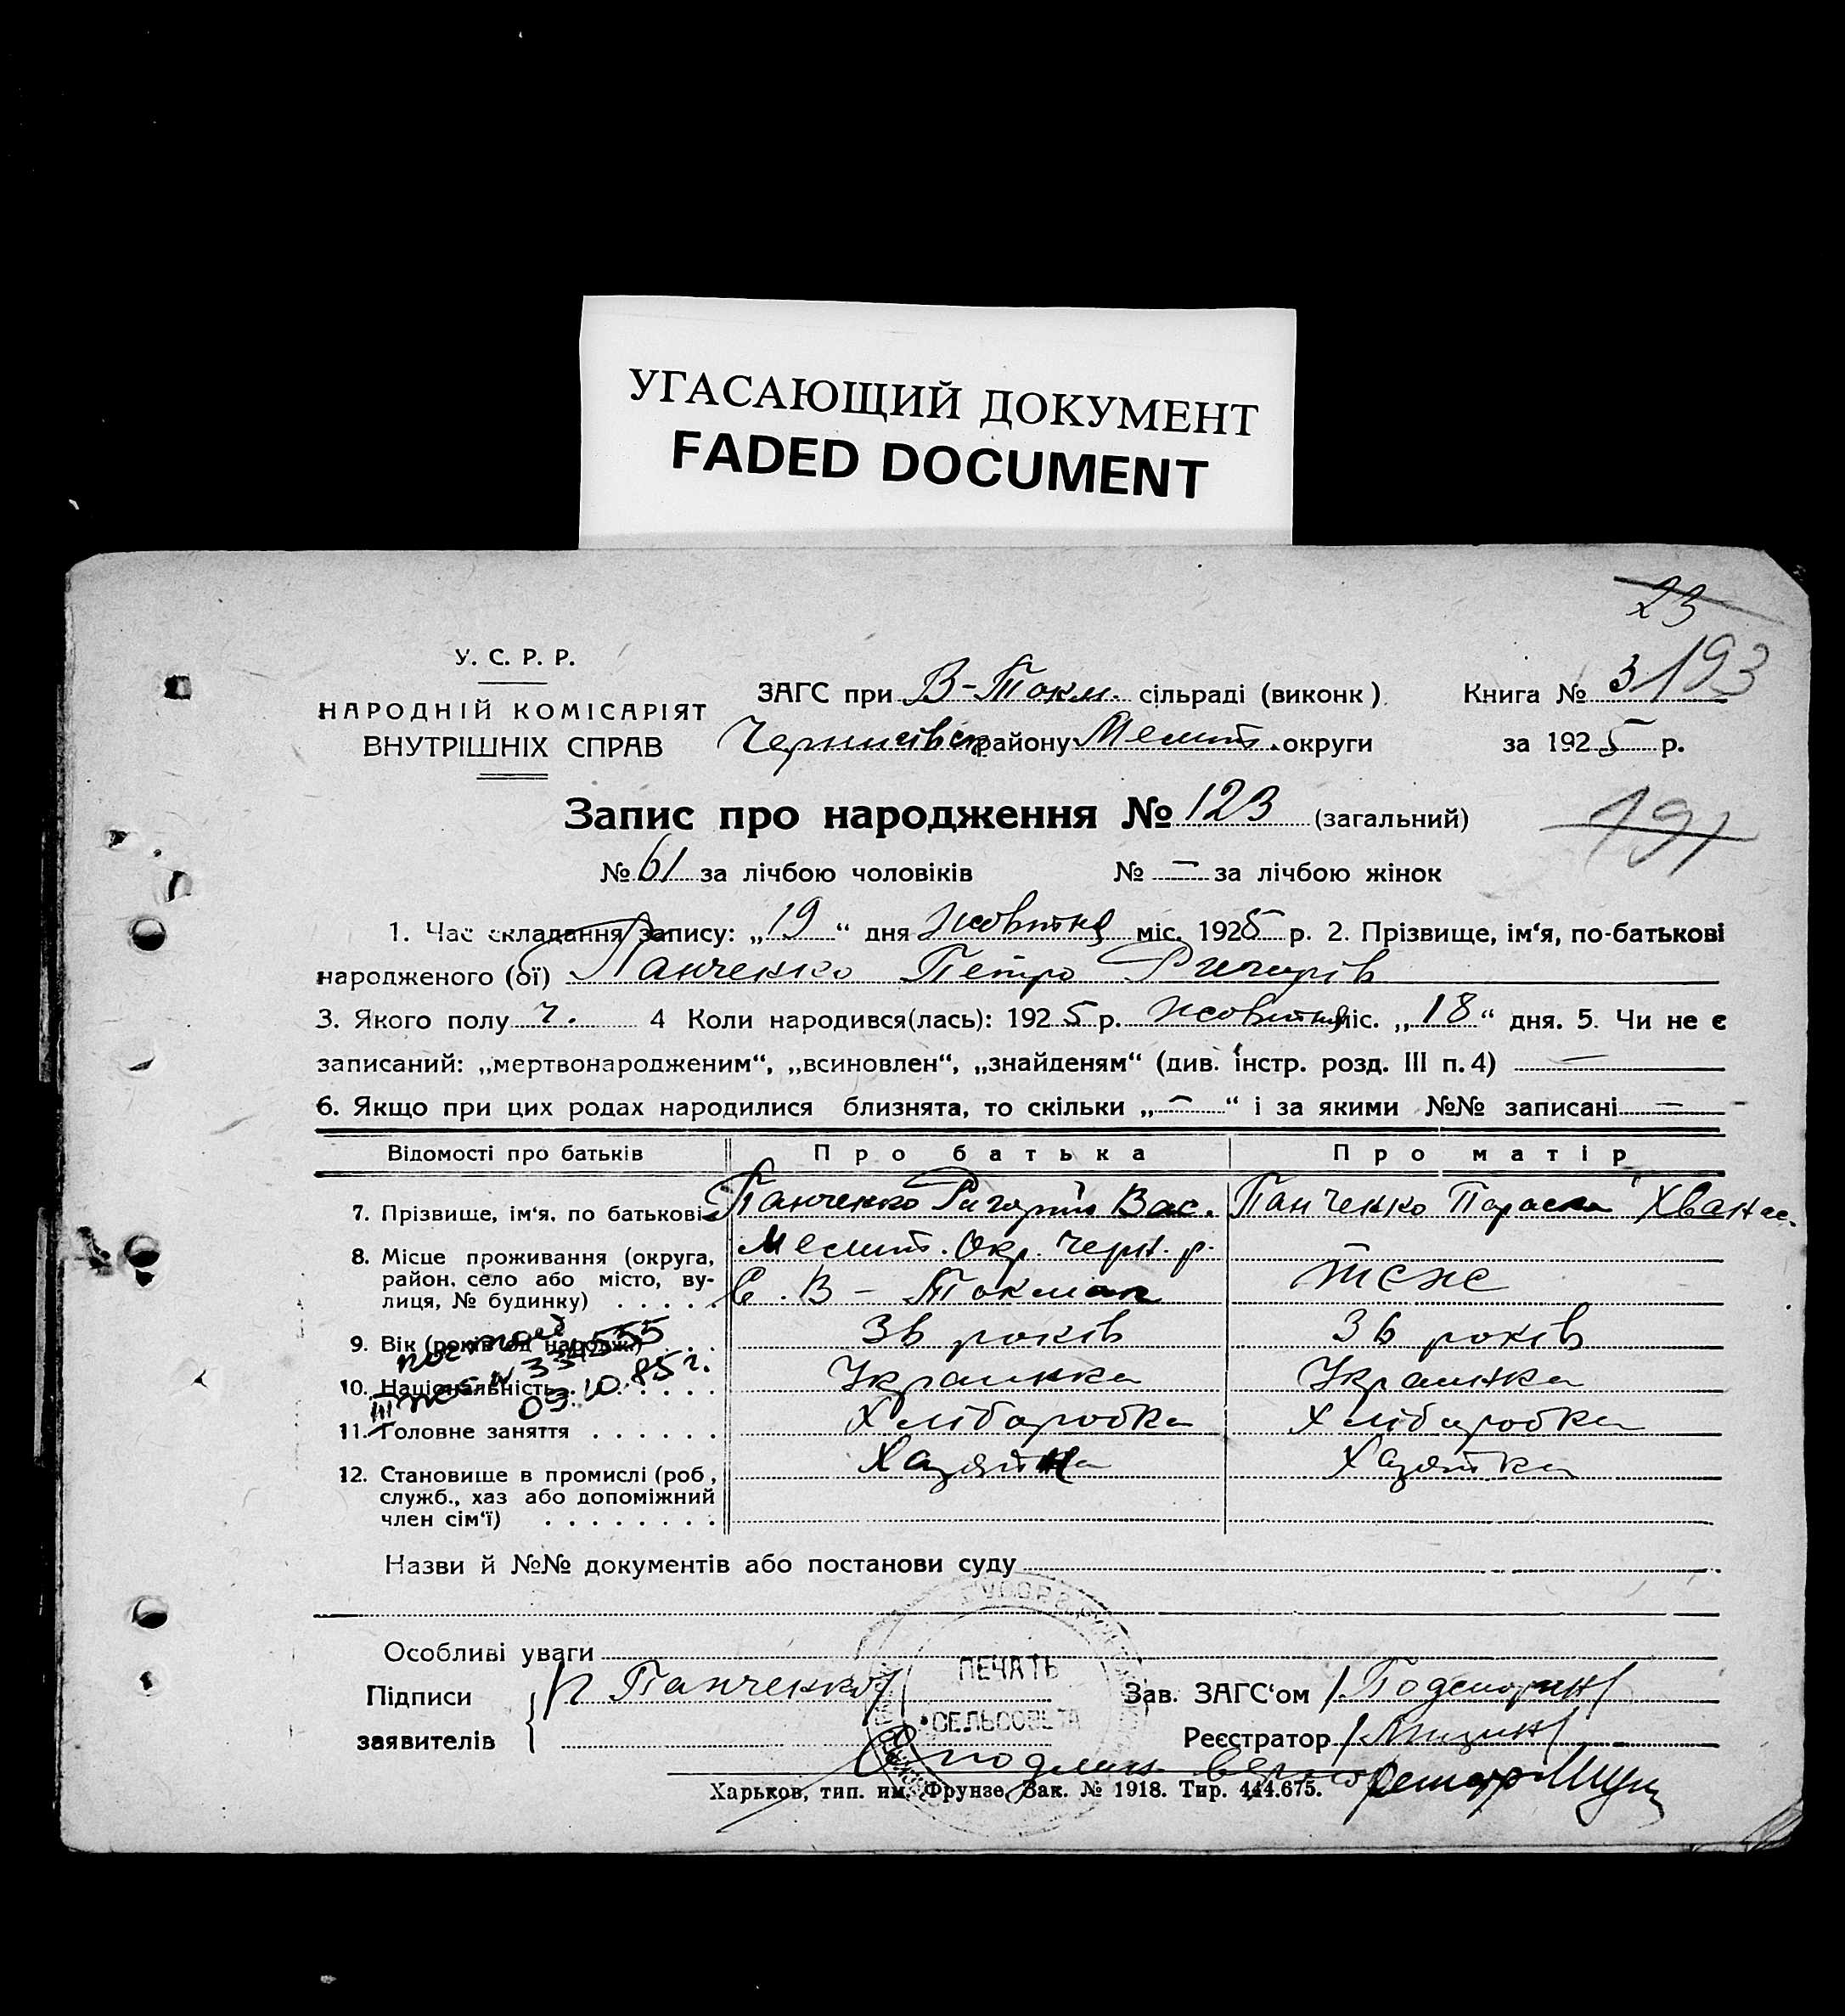 УГАСАЮЩИЙ ДОКУМЕНТ
FADED DOCUMENT
23
У. С. Р. Р.
НАРОДНІЙ КОМІСАРІЯТ
ВНУТРІШНІХ СПРАВ
ЗАГС при В-Токм. сільраді (виконк). Книга № 3 193
Чернигівск району Мелит. округи за 1925 р.
Запис про народження № 123 (загальний)
191
№ 61 за лічбою чоловіків № — за лічбою жінок
1. Час складання запису: „19“ дня жовтня міс. 1925 р. 2. Прізвище, ім‘я, по-батькові
народженого (ої) Панченко Петро Ригорів
3. Якого полу ч. 4 Коли народився(лась): 1925 р. жовтня міс. „18“ дня. 5. Чи не є
записаний: „мертвонародженим“, „всиновлен“, „знайденям“ (див. інстр. розд. III п. 4) —
6. Якщо при цих родах народилися близнята, то скільки „—“ і за якими №№ записані —
Відомості про батьків Про батька Про матір
7. Прізвище, ім‘я, по батькові Панченко Ригорій Вас. Панченко Параска Хванас.
8. Місце проживання (округа, Мелит. Окр. Черн. р.
район, село або місто, ву- С. В - Токмак теже
лиця, № будинку)
9. Вік (років од народж.) 36 років 36 років
334555
10. Національність Украинка Украинка
III 09.10.85г.
11. Головне заняття Хлібаробка Хлібаробка
12. Становище в промислі (роб, Хазяйка Хазяйка
служб., хаз або допоміжний
член сім‘ї)
Назви й №№ документів або постанови суду
Особливі уваги
Підписи /п Панченко/ Зав. ЗАГС‘ом
заявителів Реєстратор
ПЕЧАТЬ
СЕЛЬСОВЕТА
С подлин. верно
Харьков, тип. им. Фрунзе, Зак. № 1918. Тир. 444.675.